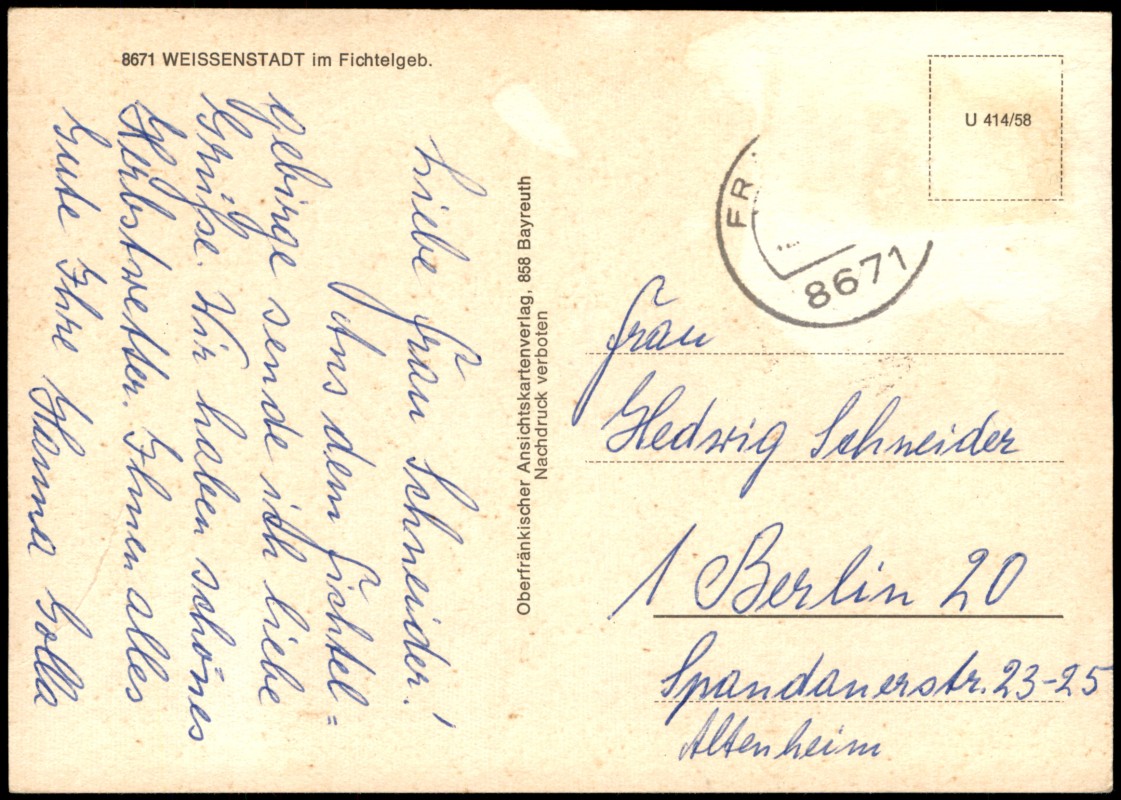 8671 WEISSENSTADT im Fichtelgeb.
Liebe Frau Schneider!
Aus dem Fichtel=
gebirge sende ich liebe
Grüße. Wir haben schönes
Herbstwetter. Ihnen alles
Gute Ihre Hanna Golla
Oberfränkischer Ansichtskartenverlag, 858 Bayreuth
Nachdruck verboten
U 414/58
FR
8671
Frau
Hedwig Schneider
1 Berlin 20
Spandauerstr. 23-25
Altenheim